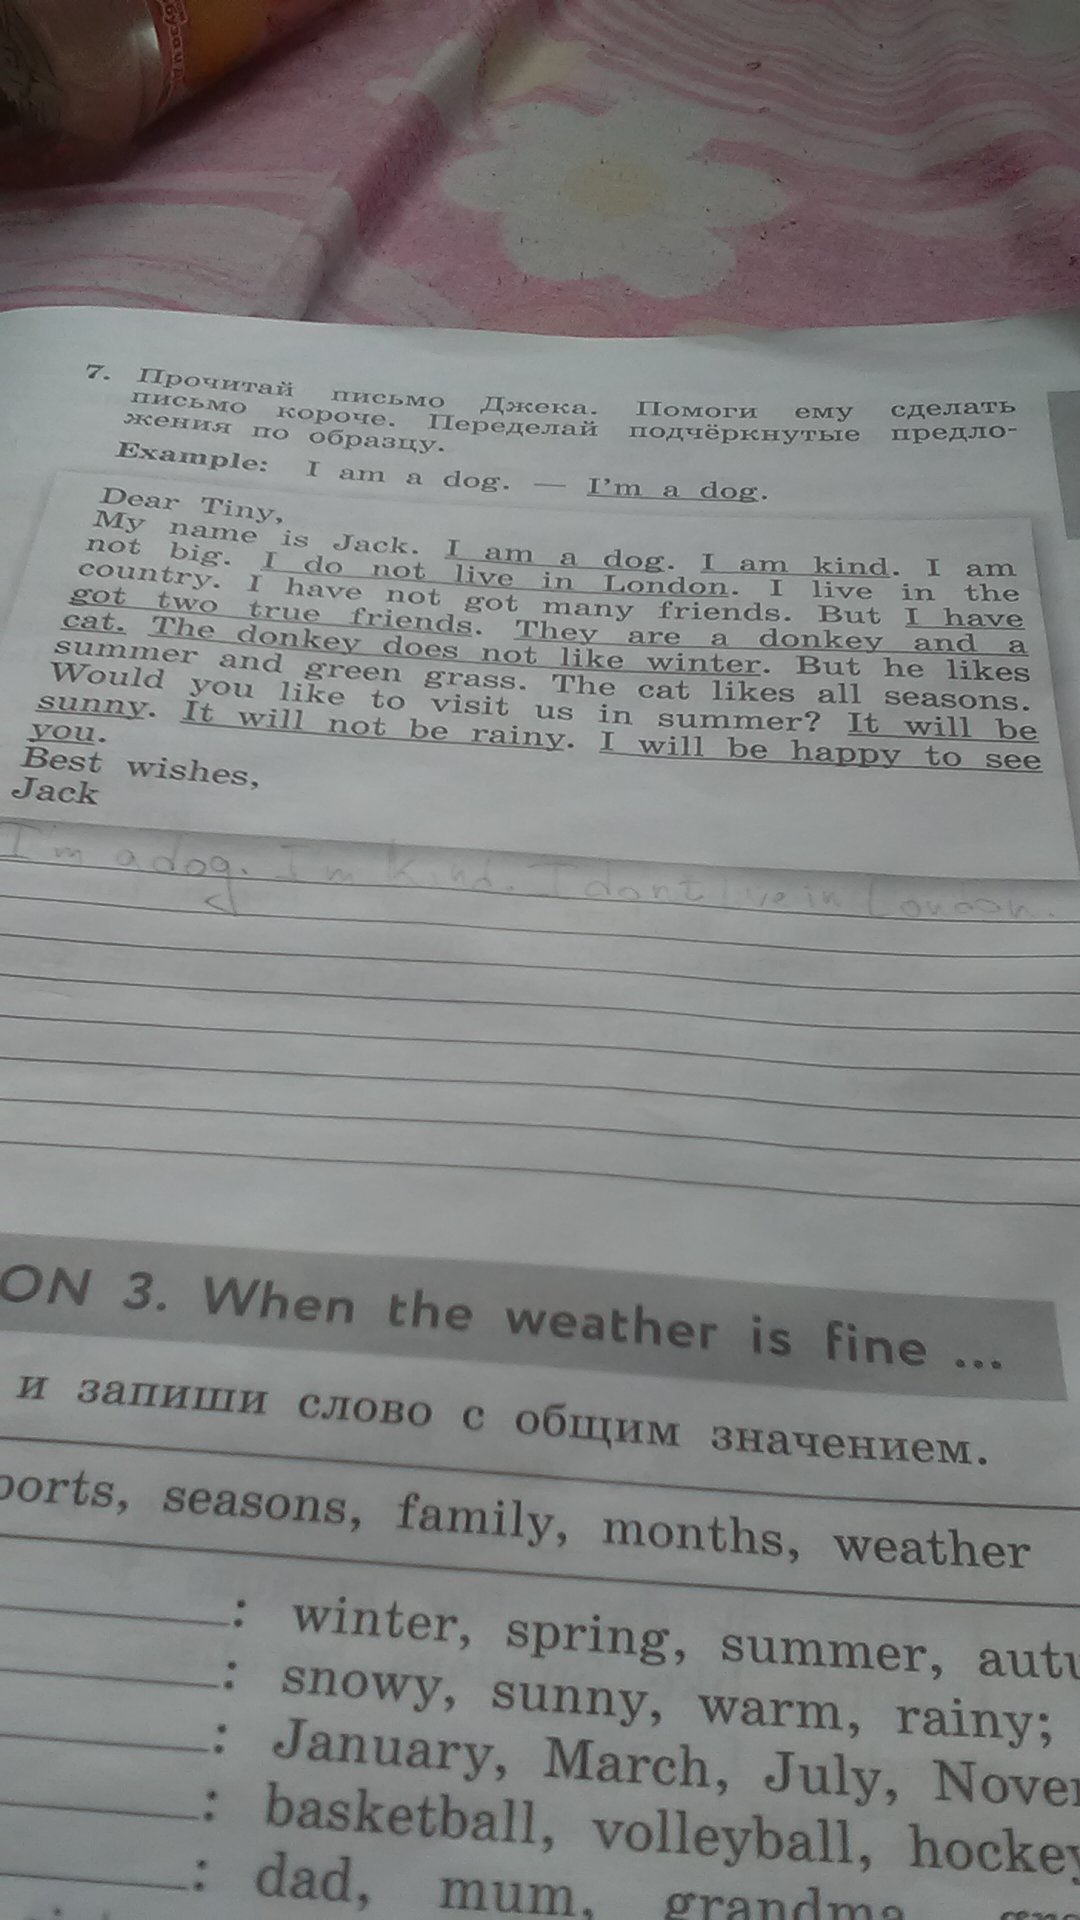 7. Прочитай письмо Джека. Помоги ему сделать
письмо короче. Переделай подчёркнутые предло-
жения по образцу.
Example: I am a dog. — I'm a dog.
Dear Tiny,
My name is Jack. I am a dog. I am kind. I am
not big. I do not live in London. I live in the
country. I have not got many friends. But I have
got two true friends. They are a donkey and a
cat. The donkey does not like winter. But he likes
summer and green grass. The cat likes all seasons.
Would you like to visit us in summer? It will be
sunny. It will not be rainy. I will be happy to see
you.
Best wishes,
Jack
I'm a dog. I'm kind. I dont live in London.
ON 3. When the weather is fine ...
и запиши слово с общим значением.
ports, seasons, family, months, weather
: winter, spring, summer, autu
: snowy, sunny, warm, rainy;
: January, March, July, Novem
: basketball, volleyball, hockey
: dad, mum, grandma